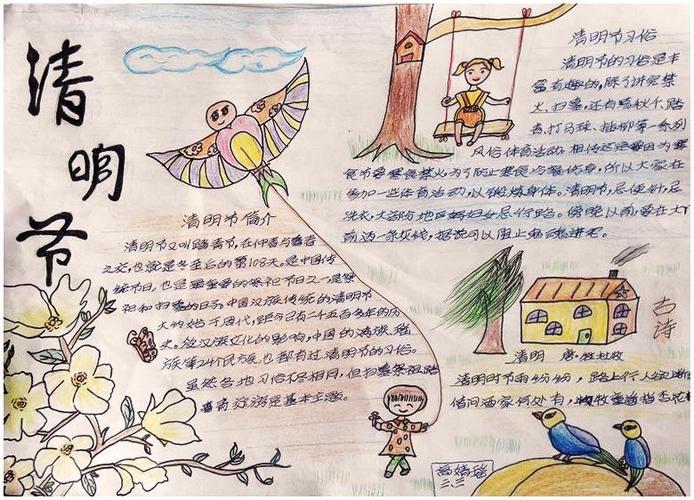 清明节
清明节简介
清明节又叫踏青节,在仲春与暮春
之交,也就是冬至后的第108天。是中国传
统节日,也是最重要的祭祀节日之一是祭
祀和扫墓的日子。中国汉族传统的清明节
大约始于周代,距今已有二千五百多年的历
史。受汉族文化的影响,中国的满族、
族等24个民族,也都有过清明节的习俗。
虽然各地习俗不尽相同,但扫墓祭祖、踏
青 游是基本主题。
清明节习俗
清明节的习俗是丰
富有趣的,除了讲究禁
火、扫墓,还有荡秋千、踏
青、打马球、插柳等一系列
风俗体育活动 相传这是因为寒
食节要寒食禁火,为了防止寒食冷餐伤身,所以大家
参加一些体育活动,以锻炼身体。清明节,忌使针,忌
洗衣,大部分地区妇女忌行路。傍晚以前,要在大门
前洒一条灰线,据说可以阻止鬼魂进宅。
古诗
清明 唐·杜牧
清明时节雨纷纷,路上行人欲断
借问酒家何处有,牧童 指杏花
三、三